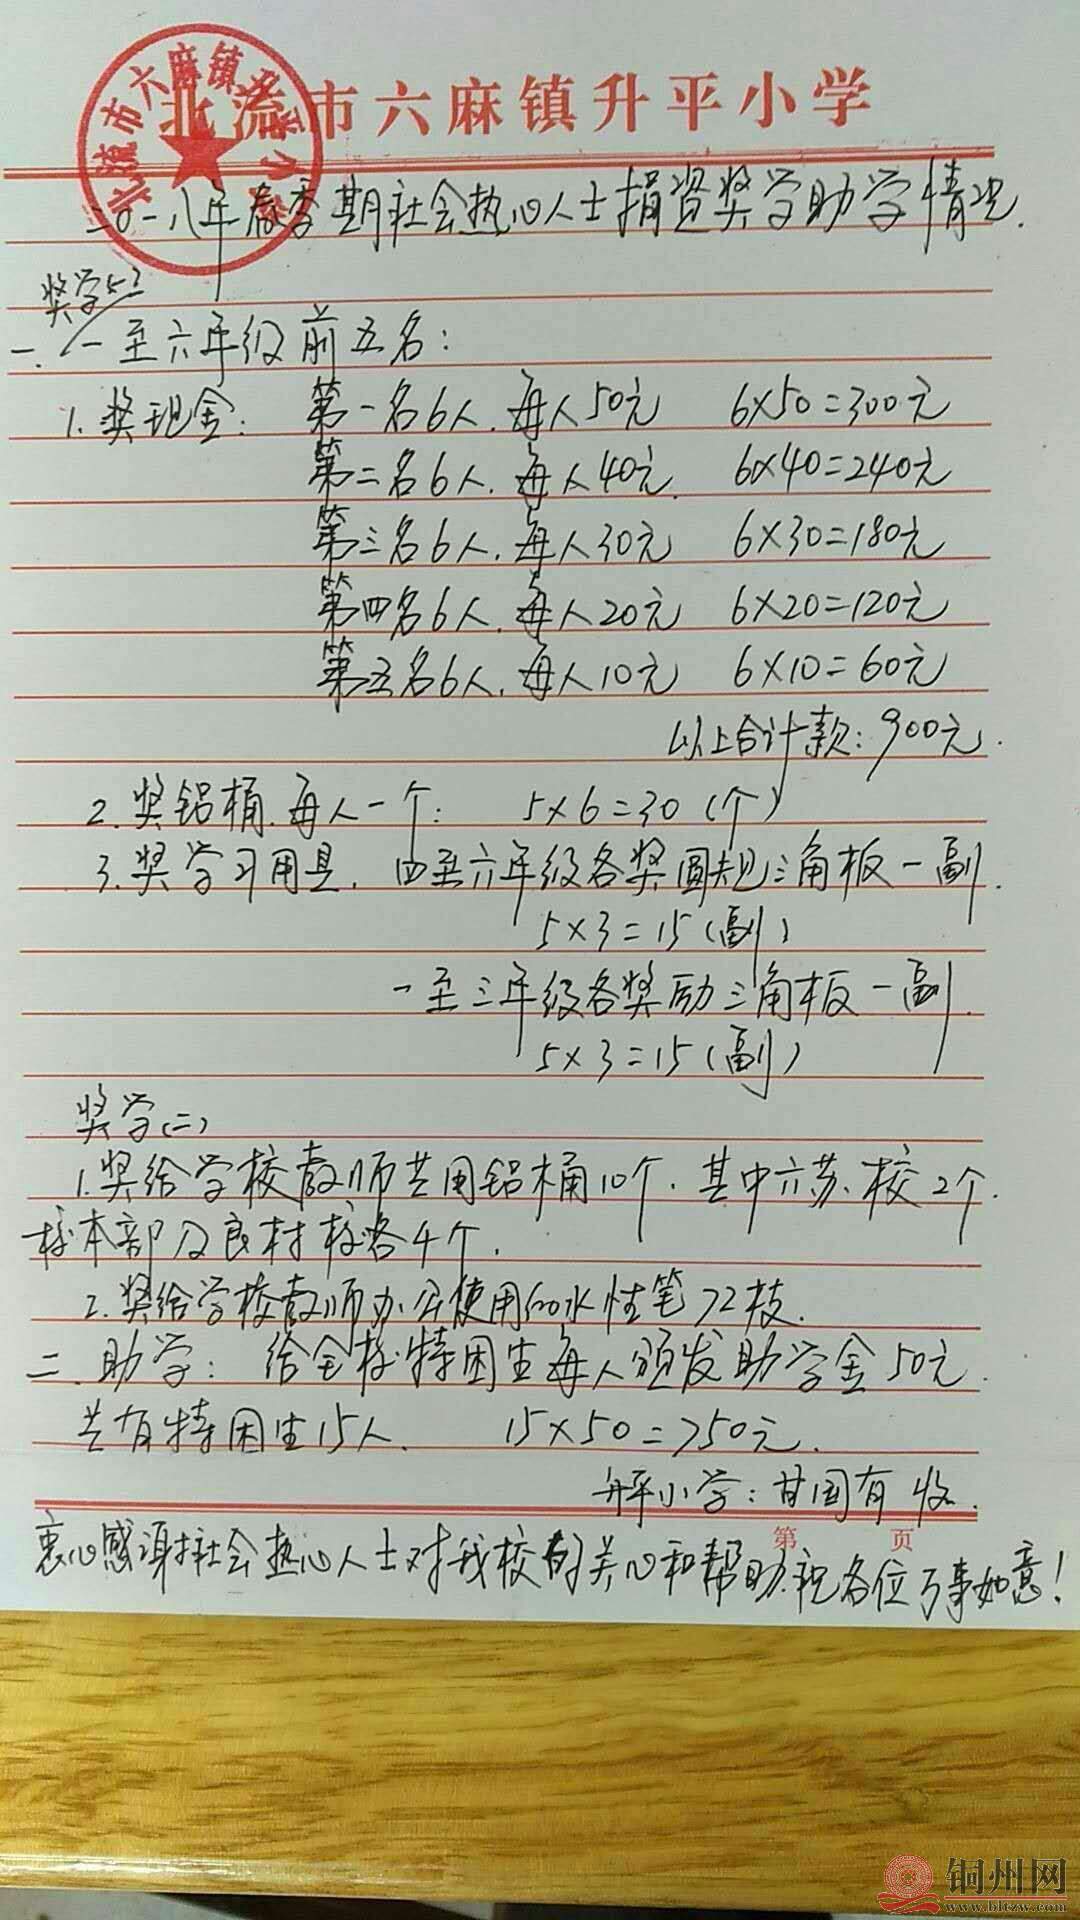 北流市六麻镇升平小学
二0一八年春季期社会热心人士捐资奖学助学情况.
奖学(一)
一.一至六年级前五名:
1.奖现金: 第一名6人.每人50元 6×50=300元
第二名6人.每人40元. 6×40=240元
第三名6人.每人30元 6×30=180元
第四名6人.每人20元 6×20=120元
第五名6人.每人10元 6×10=60元
以上合计款:900元.
2.奖铝桶.每人一个: 5×6=30(个)
3.奖学习用具. 四至六年级各奖圆规三角板一副.
5×3=15(副)
一至三年级各奖励三角板一副.
5×3=15(副)
奖学(二)
1.奖给学校教师共用铝桶10个.其中六苏校2个.
校本部及良村校各4个.
2.奖给学校教师办公使用的水性笔72枝.
二.助学: 给全校特困生每人颁发助学金50元.
共有特困生15人. 15×50=750元.
升平小学:甘国有 收.
第 页
衷心感谢社会热心人士对我校的关心和帮助.祝各位万事如意!
铜州网
www.bltzw.com